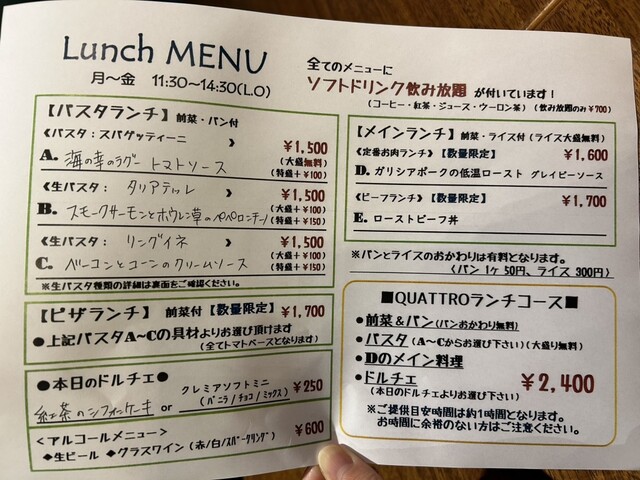 Lunch MENU
月～金 11:30～14:30(L.O)
全てのメニューに
ソフトドリンク飲み放題 が付いています！
（コーヒー・紅茶・ジュース・ウーロン茶）（飲み放題のみ¥700）
【パスタランチ】前菜・パン付
《パスタ：スパゲッティーニ 》
¥1,500
A. 海の幸のラグー トマトソース
(大盛無料)
(特盛＋¥100)
《生パスタ： タリアテッレ 》
¥1,500
B. スモークサーモンとホウレン草のペペロンチーノ
(大盛＋¥100)
(特盛＋¥150)
《生パスタ： リングイネ 》
¥1,500
C. ベーコンとコーンのクリームソース
(大盛＋¥100)
(特盛＋¥150)
※生パスタ種類の詳細は裏面をご確認ください。
【ピザランチ】前菜付【数量限定】¥1,700
●上記パスタA～Cの具材よりお選び頂けます
（全てトマトベースとなります）
●本日のドルチェ●
紅茶のシフォンケーキ or クレミアソフトミニ
（バニラ/チョコ/ミックス）
¥250
＜アルコールメニュー＞
◆生ビール ◆グラスワイン（赤/白/スパークリング）
¥600
【メインランチ】前菜・ライス付（ライス大盛無料）
《定番お肉ランチ》【数量限定】 ¥1,600
D. ガリシアポークの低温ロースト グレイビーソース
《ビーフランチ》【数量限定】 ¥1,700
E. ローストビーフ丼
※パンとライスのおかわりは有料となります。
（パン 1ヶ 50円、ライス 300円）
■QUATTROランチコース■
●前菜＆パン（パンおかわり無料）
●パスタ（A～Cからお選び下さい）（大盛り無料）
●Dのメイン料理
●ドルチェ
（本日のドルチェよりお選び下さい）
¥2,400
※ご提供目安時間は約1時間となります。
お時間に余裕のない方はご注意ください。